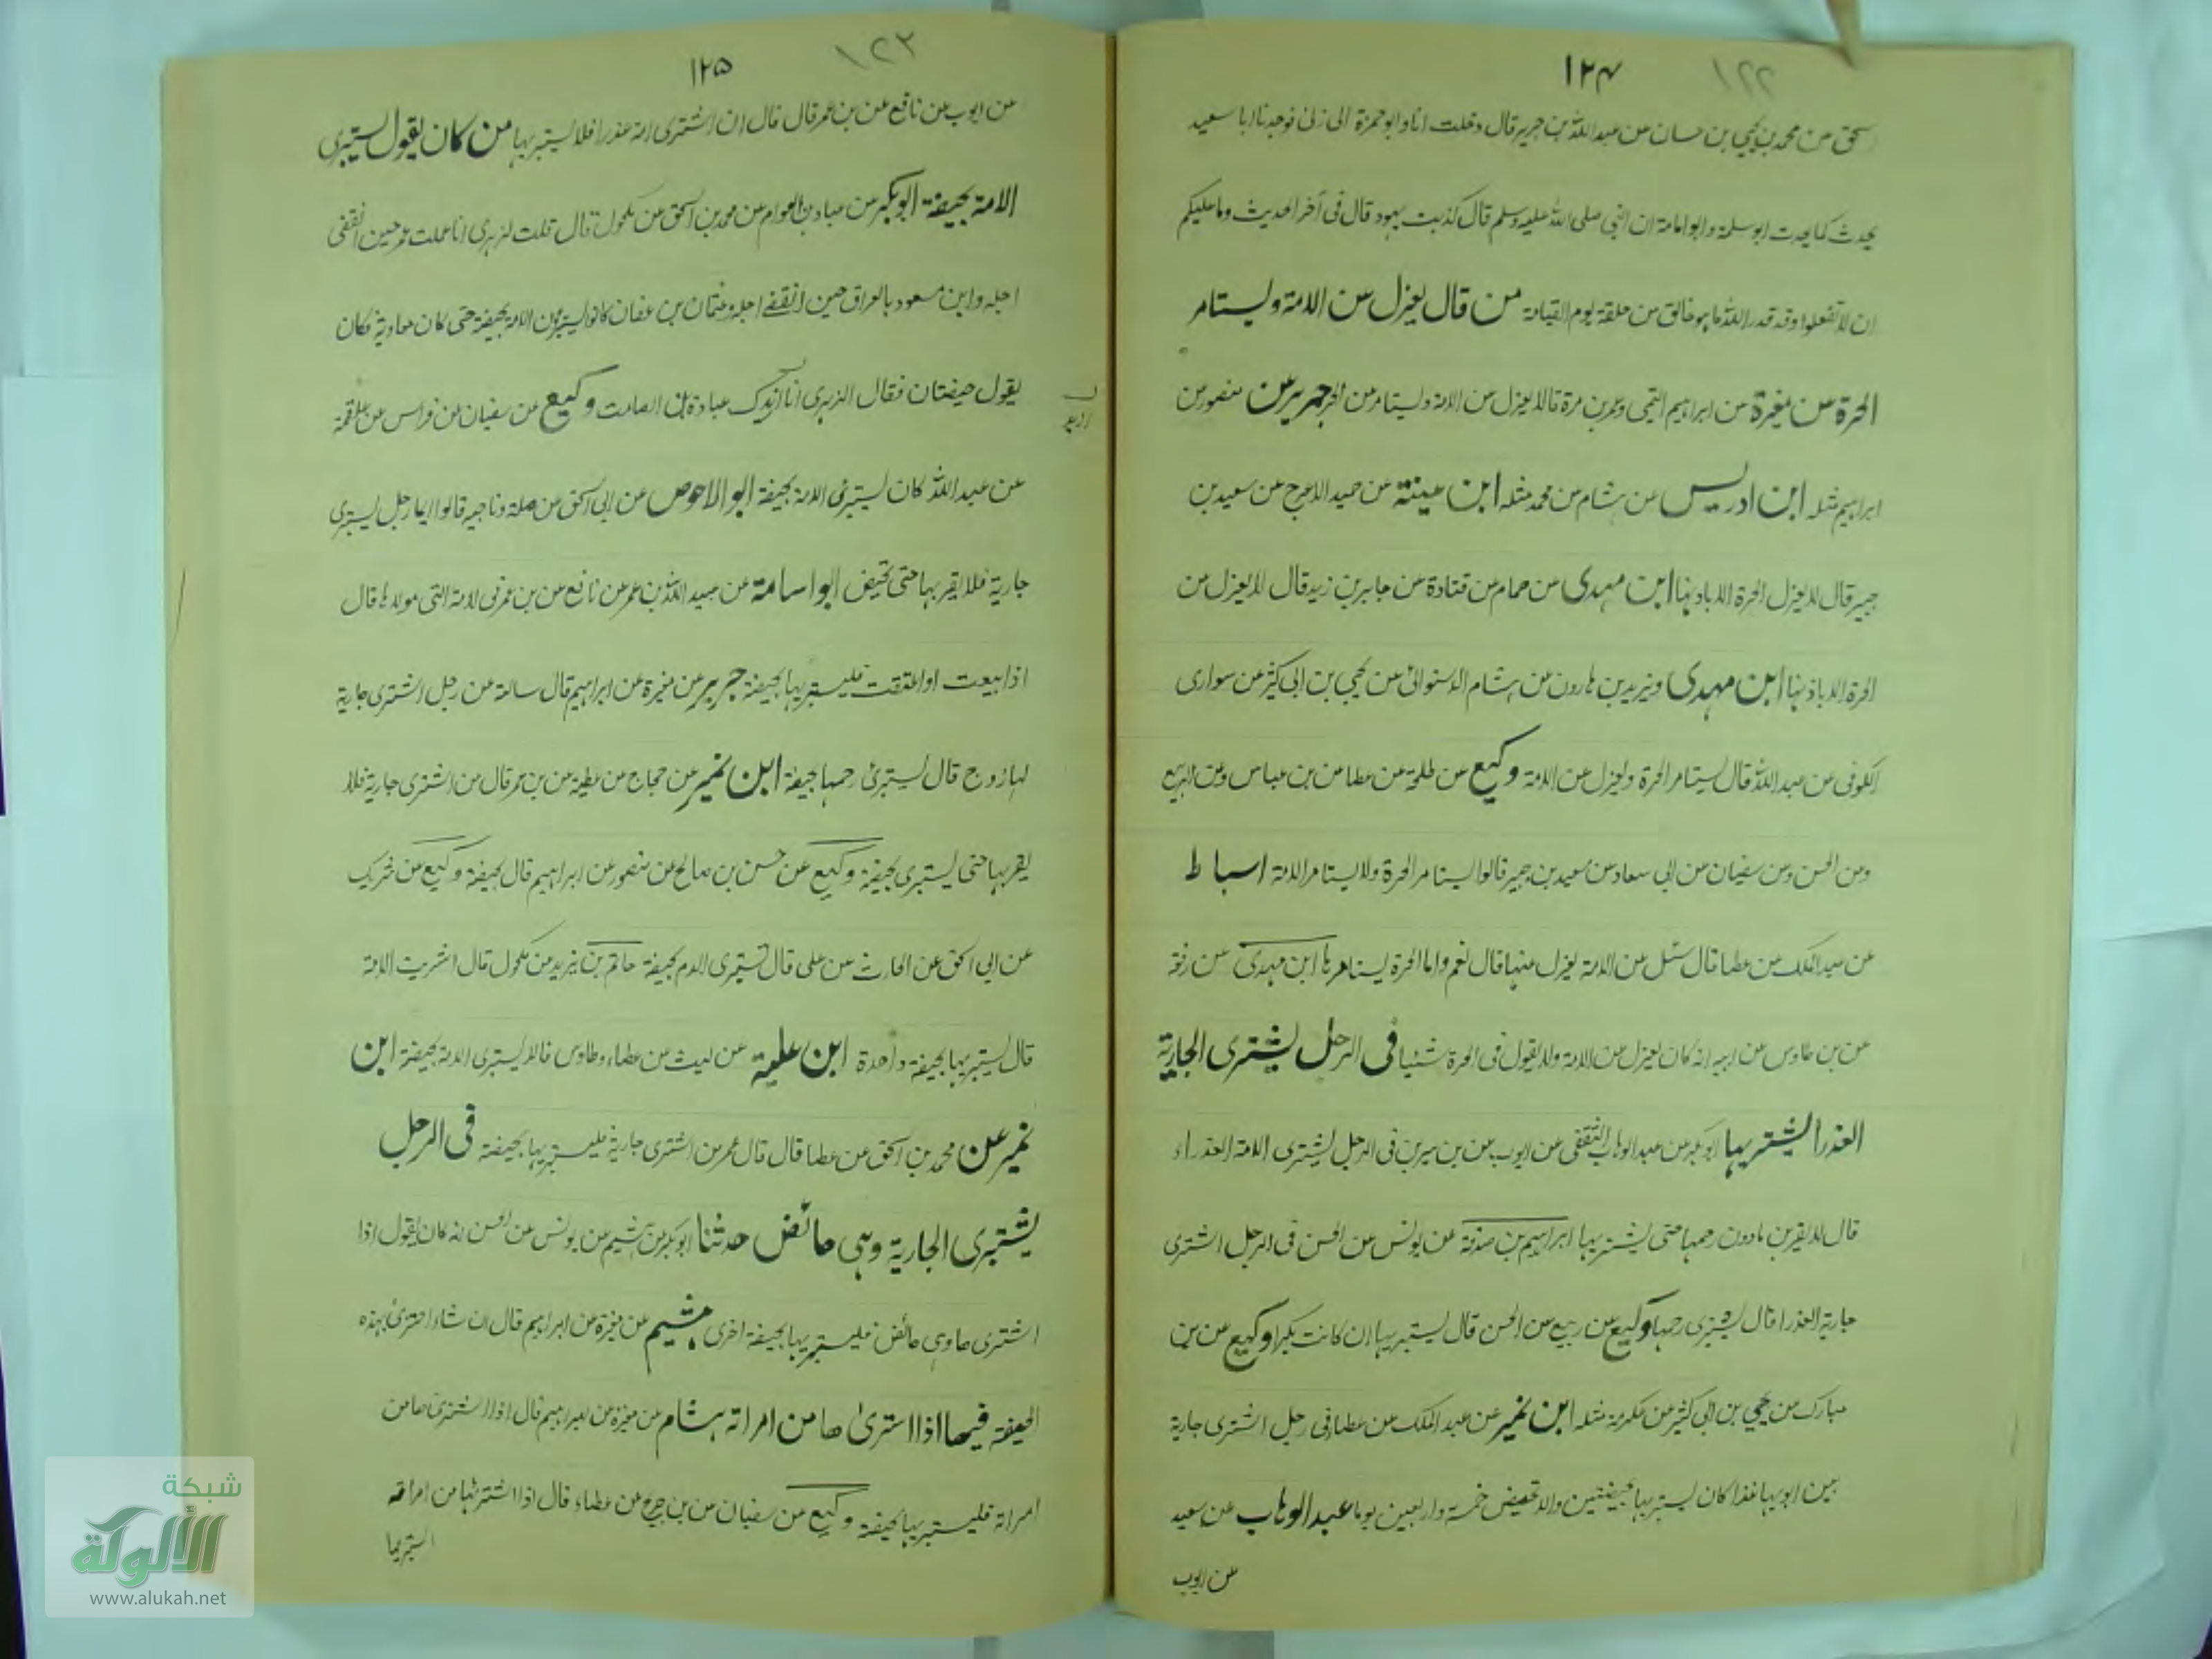 ١٢٤
١٢٢
سحق عن محمد بن يحيى بن حسان عن عبد الله بن جرير قال دخلت انا وابو حمزة الى نى فوجدنا ابا سعيد
يحدث كما يحدث ابو سلمة وابو امامة ان النبي صلى الله عليه وسلم قال كذبت يهود قال في آخر الحديث وما عليكم
ان لا تفعلوا وقد قدر الله ما هو خالق من خلقه يوم القيامة من قال يعزل عن الامة ويستامر
الحرة عن مغيرة عن ابراهيم التيمي وعمرو بن مرة قالا يعزل عن الامة ويستامر من الحرة جرير عن منصور عن
ابراهيم مثله ابن ادريس عن هشام عن محمد مثله ابن عيينة عن حميد الاعرج عن سعيد بن
جبير قال لا يعزل الحرة الا باذنها ابن مهدى عن همام عن قتادة عن جابر بن زيد قال لا يعزل عن
الحرة الا باذنها ابن مهدى ويزيد بن هارون عن هشام الدستوائى عن يحيى بن ابى كثير عن سوارى
الكوفى عن عبد الله قال يستامر الحرة ويعزل عن الامة وكيع عن طلحة عن عطا عن بن عباس وعن الربيع
وعن الحسن وعن سفيان عن ابى سعاد عن سعيد بن جبير قالوا يستامر الحرة ولا يستامر الامة اسباط
عن عبد الملك عن عطا قال سئل عن الامة يعزل عنها قال نعم واما الحرة يستامرها ابن مهدى عن زمعة
عن بن طاوس عن ابيه انه كان يعزل عن الامة ولا يقول فى الحرة شئيا فى الرجل يشترى الجارية
العذرا يشتريها ابو بكر عن عبد الوهاب الثقفى عن ايوب عن بن سيرين فى الرجل يشترى الامة العذراء
قال لا يقربن مادون رحمها حتى يشتريها ابراهيم بن صدقة عن يونس عن الحسن فى الرجل اشترى
جارية العذرا قال يشترى رحمها وكيع عن ربيع عن الحسن قال يستبريها ان كانت بكرا وكيع عن بن
مبارك عن يحيى بن ابى كثير عن عكرمة مثله ابن نمير عن عبد الملك عن عطا فى رجل اشترى جارية
بين ابويها عذرا كان يستبريها بحيضتين والا تحيض خمسة واربعين يوما عبد الوهاب عن سعيد
عن ايوب
١٢٥
١٢٣
عن ايوب عن نافع عن بن عمر قال قال ان اشترى امة عذرا فلا يستبريها من كان يقول يستبرى
الامة بحيضة ابو بكر عن عباد بن العوام عن محمد بن اسحق عن مكحول قال قلت لزهرى انا علمت عمر حين انقضى
اجله وابن مسعود بالعراق حين انقضے اجله وعثمان بن عفان كانوا يستبرون الامة بحيضة حتى كان معاوية فكان
يقول حيضتان فقال الزهرى انا ازيدك عبادة بن الصامت وكيع عن سفيان عن فراس عن علقمة
ازيد
عن عبد الله كان يستبرئ الامة بحيضة ابو الاحوص عن ابى اسحق عن صلة وناجيه قالوا ايما رجل يستبرى
جارية فلا يقربها حتى تحيض ابو اسامة عن عبيد الله بن عمر عن نافع عن بن عمر فى الامة التى مولدها قال
اذا بيعت او اعتقت فليستبريها بحيضة جرير عن مغيرة عن ابراهيم قال سالته عن رجل اشترى جارية
لها زوج قال يستبرئ رحمها بحيضة ابن نمير عن حجاج عن عطية عن بن عمر قال من اشترى جارية فلا
يقربها حتى يستبرى بحيضة وكيع عن حسن بن صالح عن منصور عن ابراهيم قال بحيضة وكيع عن شريك
عن ابى اسحق عن الحارث عن على قال تستبرى الامة بحيضة حاتم بن يزيد عن مكحول قال اشتريت الامة
قال يستبريها بحيضة واحدة ابن علية عن ليث عن عطاء وطاوس قالا يستبرى الامة بحيضة ابن
نمير عن محمد بن اسحق عن عطا قال قال عمر من اشترى جارية فليستبريها بحيضة فى الرجل
يشترى الجارية وهى حائض حدثنا ابو بكر عن هشيم عن يونس عن الحسن انه كان يقول اذا
اشتراها وهى حائض فليستبريها بحيضة اخرى هشيم عن مغيرة عن ابراهيم قال ان شاء اجتزئ بهذه
الحيضة فيما اذا اشترىٰ ها من امراته هشام عن مغيرة عن ابراهيم قال اذا اشترى ها من
امراته فليستبريها بحيضة وكيع عن سفيان عن بن جريج عن عطاء قال اذا اشتراها من امراته
استبريها
شبكة
الألوكة
www.alukah.net